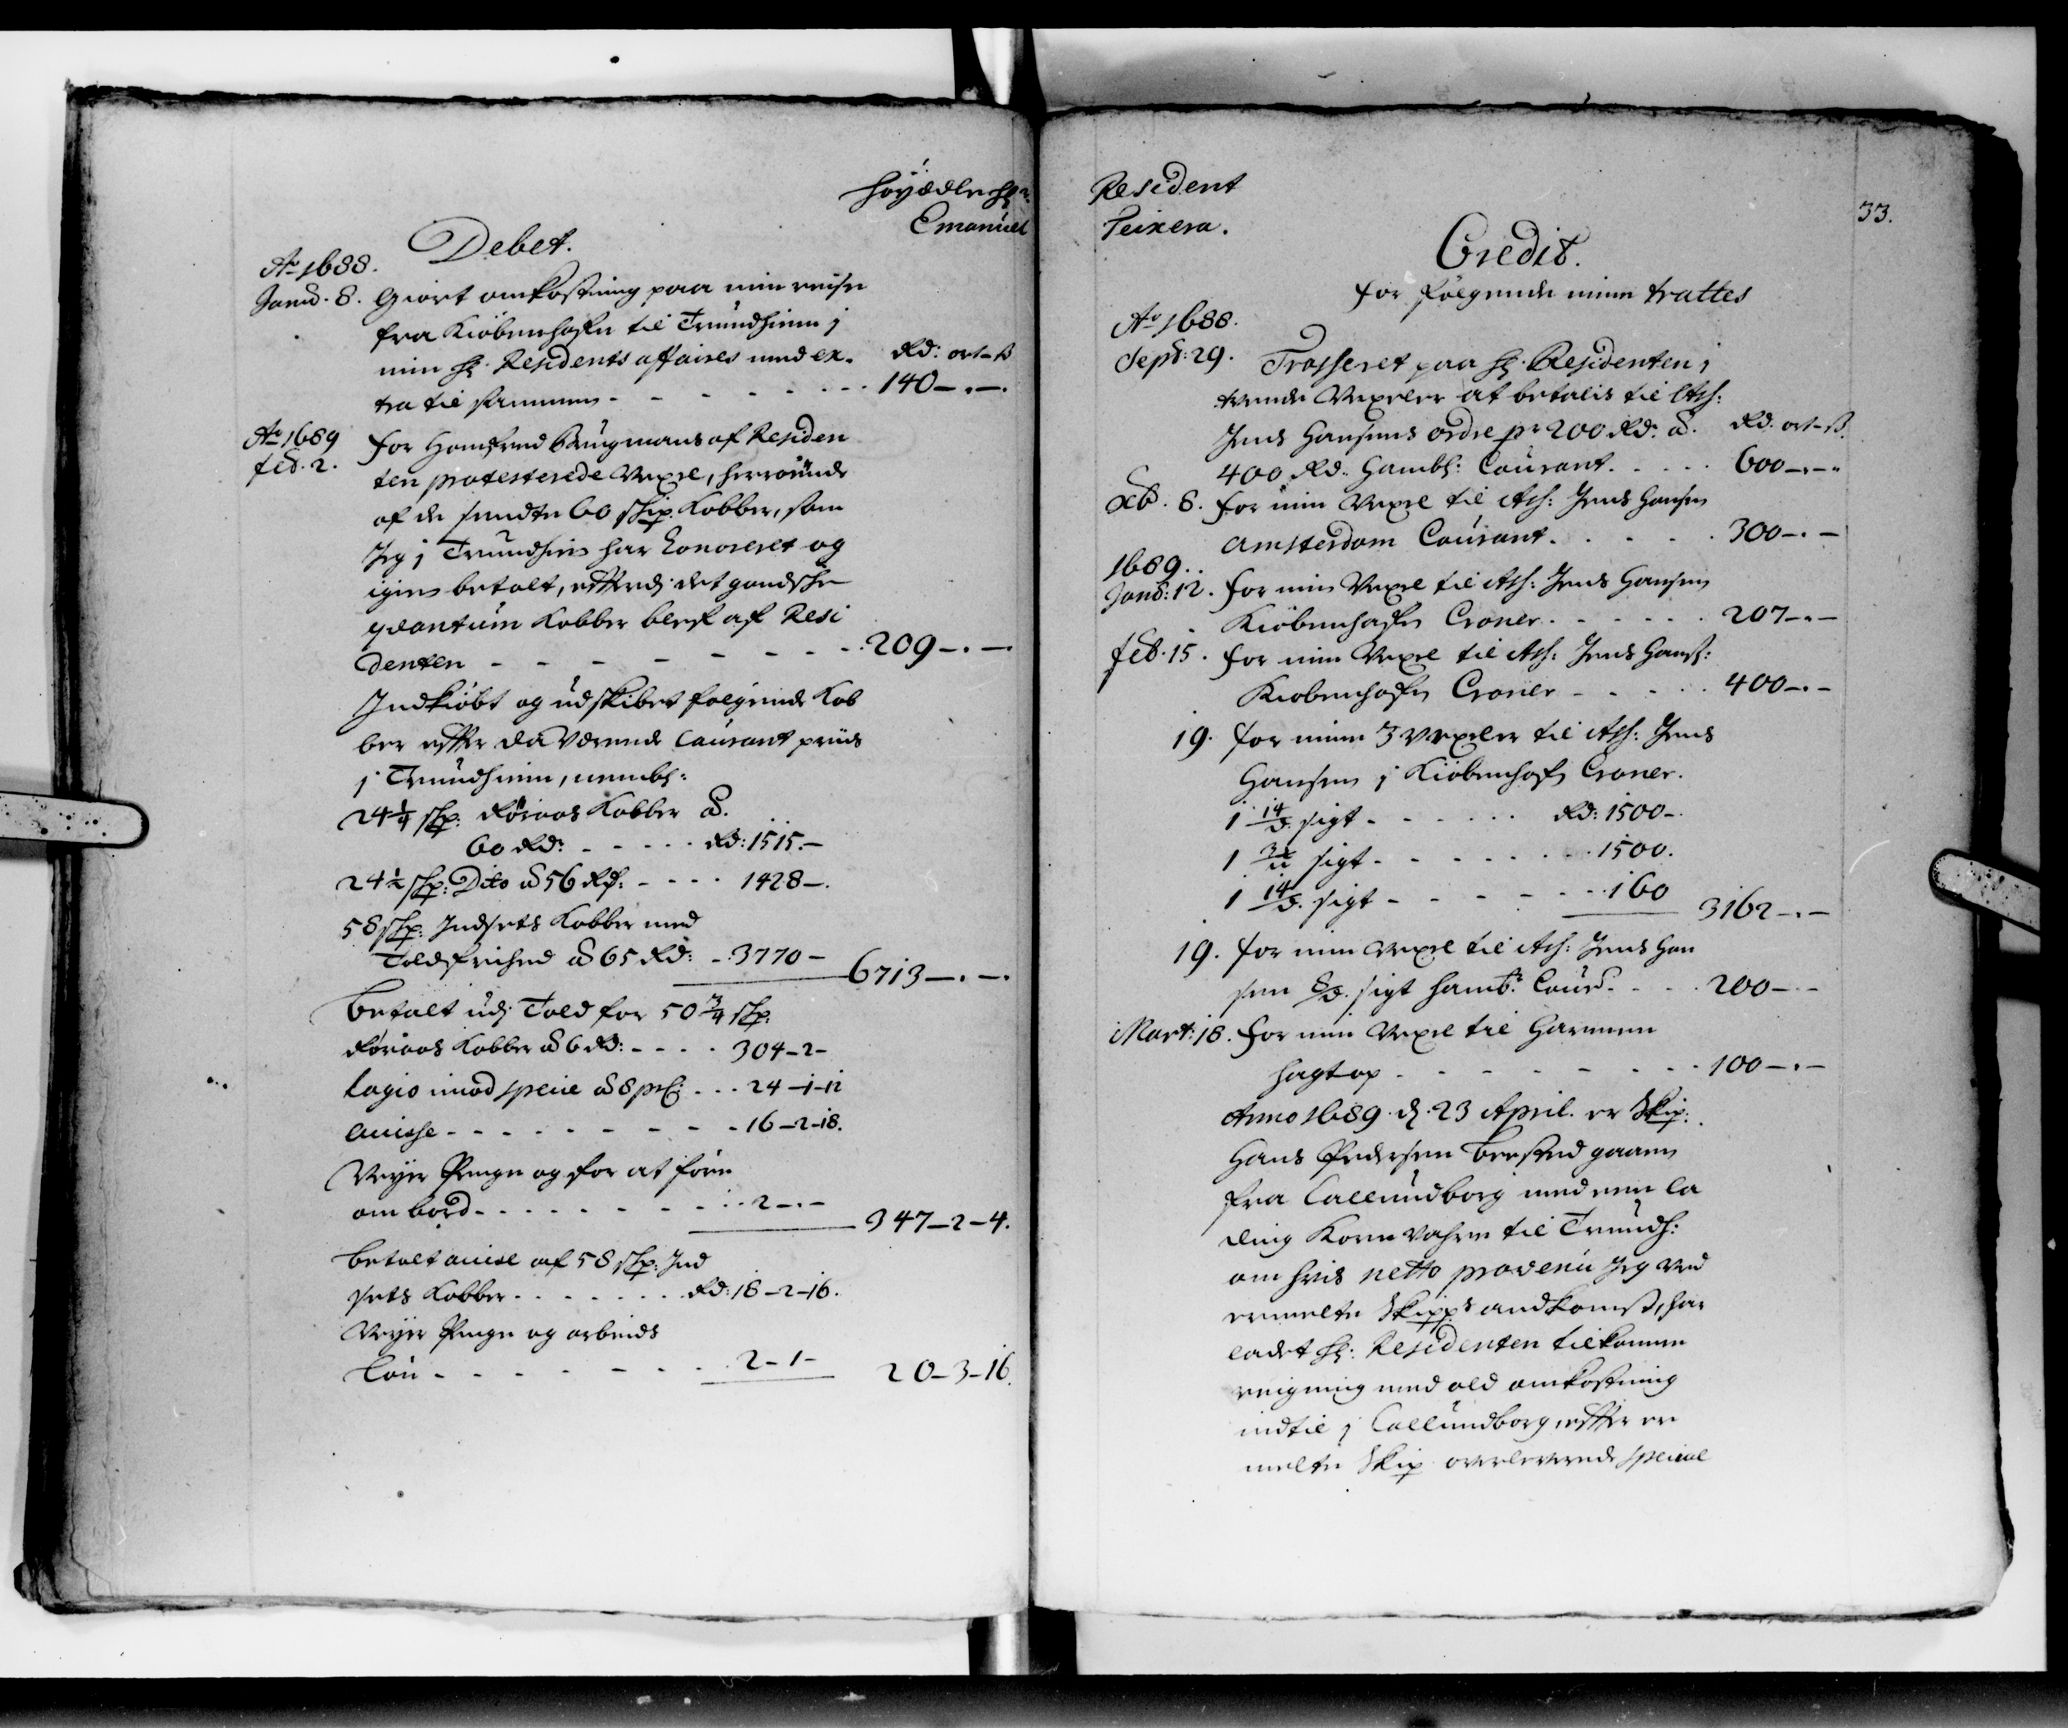 Höyædle Hr.
Emanuel
Debet.
Ao 1688.
Janu. 8. Giort omkostning paa min reise
fra Kiöbenhafn til Trundhiem j
min Hr. Residents affaires med ex-
Rd: ort ß
tra til sammen - - - - - - 140 - . - .
Ao 1689
feb. 2.
for Brugmans af Residen
ten protesterede Vexel, herrörende
af de sendte 60 skip. Kobber, som
Jeg j Trundhiem har honoreret og
igien betalt, efftersom det gandske
qvantum Kobber blef af Resi
denten - - - - - - - - 209 - . -
Indkiöbt og udskibet fölgende Kob
ber effter da værende Courant priis
j Trundhiem, nembl:
24 1/4 skp: Röraas Kobber à
60 Rd: - - - - - Rd: 1515. -
24 1/2 skp: Dito à 56 Rd: - - - - 1428 -.
58 skp: Indsets Kobber med
Toldfrihed à 65 Rd: - 3770 -
6713 - . - .
Betalt udj Told for 50 3/4 skp:
Röraas Kobber à 6 Rd: - - - - 304 - 2 -
Lagio imod specie à 8 prC: - - - 24 - 1 - 12
Accisse - - - - - - - - - 16 - 2 - 18.
Veyer Penge og for at före
om bord - - - - - - - - 2 - . -
347 - 2 - 4.
Betalt accise af 58 skp: Ind
sets Kobber - - - - - - - Rd: 18 - 2 - 16.
Veyer Penge og arbeids
Lön - - - - - - - - 2 - 1 -
20 - 3 - 16.
Resident
Teixera.
33.
Credit.
for fölgende mine trattes
Ao 1688.
Sept: 29. Trasseret paa Hr. Residenten j
tvende Vexeler at betalis til Ass:
Jens Hansens ordre pr 200 Rd. à
Rd. ort - ß.
400 Rd. Hambl: Courant - - - - 600 - . - .
Xb. 8. for min Vexel til Ass: Jens Hansen
Amsterdam Courant - - - - - 300 - . -
1689.
Janu: 12. for min Vexel til Ass: Jens Hansen
Kiöbenhafn Croner - - - - - - 207 - . -
feb. 15. for min Vexel til Ass: Jens Hans:
Kiobenhafn Croner - - - - - 400 - . -
19. for mine 3 Vexeler til Ass: Jens
Hansen j Kiöbenhafn Croner.
1 14/d. sigt - - - - - - Rd: 1500 -.
1 sigt - - - - - - - 1500.
1 14/d. sigt - - - - - - - 160
3162 - . -
19. for min Vexel til Ass: Jens Han
sen 8/d. sigt Hamb. Cour. - - - - 200 - . -
Mart: 18. for min Vexel til Harmen
Hagtop - - - - - - - - - 100 - . -
Anno 1689 d. 23 April. er Skip:
Hans Pedersen gaaen
fra Callundborg med een la
ding Korn Vahre til Trundh:
om hvis netto provenu Jeg ved
ermelte Skipps andkomst, har
ladet Hr: Residenten tilkomme
reigning med ald omkostning
indtil j Callundborg, effter er
melte Skip overleverede special